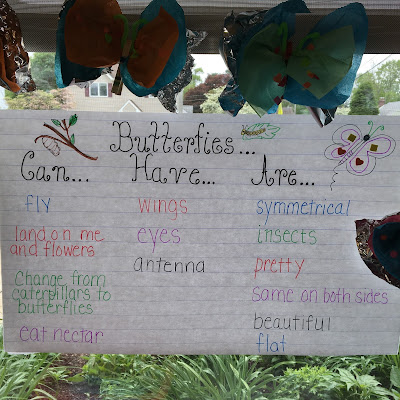 Butterfies...
Can... Have... Are...
fly
land on me
and flowers
Change from
caterpillars to
butterflies
eat nectar
wings
eyes
antenna
symmetrical
insects
pretty
same on both sides
beautiful
flat